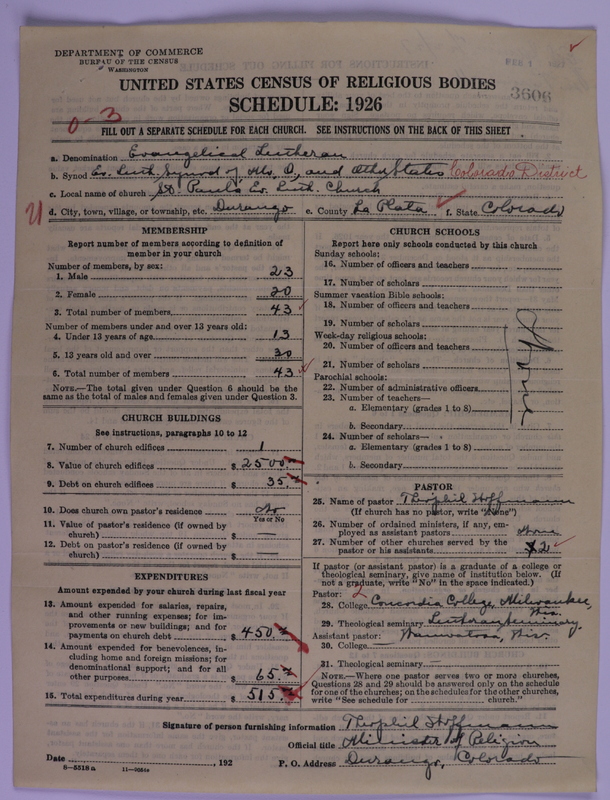 DEPARTMENT OF COMMERCE
BUREAU OF THE CENSUS
WASHINGTON
FEB 1
3606
UNITED STATES CENSUS OF RELIGIOUS BODIES
SCHEDULE: 1926
0-3
FILL OUT A SEPARATE SCHEDULE FOR EACH CHURCH. SEE INSTRUCTIONS ON THE BACK OF THIS SHEET
a. Denomination Evangelical Lutheran
b. Synod Ev. Luth. Synod of Mo. O. and Other States Colorado District
c. Local name of church St. Paul's Ev. Luth. Church
d. City, town, village, or township, etc. Durango e. County La Plata f. State Colorado
MEMBERSHIP
Report number of members according to definition of member in your church
Number of members, by sex:
1. Male 23
2. Female 20
3. Total number of members 43
Number of members under and over 13 years old:
4. Under 13 years of age 13
5. 13 years old and over 30
6. Total number of members 43
NOTE.—The total given under Question 6 should be the same as the total of males and females given under Question 3.
CHURCH BUILDINGS
See instructions, paragraphs 10 to 12
7. Number of church edifices 1
8. Value of church edifices $ 2500
9. Debt on church edifices $ 35
10. Does church own pastor's residence No
Yes or No
11. Value of pastor's residence (if owned by church) $ —
12. Debt on pastor's residence (if owned by church) $ —
EXPENDITURES
Amount expended by your church during last fiscal year
13. Amount expended for salaries, repairs, and other running expenses; for improvements or new buildings; and for payments on church debt $ 450
14. Amount expended for benevolences, including home and foreign missions; for denominational support; and for all other purposes $ 65
15. Total expenditures during year $ 515
CHURCH SCHOOLS
Report here only schools conducted by this church
Sunday schools:
16. Number of officers and teachers
17. Number of scholars
Summer vacation Bible schools:
18. Number of officers and teachers
19. Number of scholars
Week-day religious schools:
20. Number of officers and teachers
21. Number of scholars
Parochial schools:
22. Number of administrative officers
23. Number of teachers—
a. Elementary (grades 1 to 8)
b. Secondary
24. Number of scholars—
a. Elementary (grades 1 to 8)
b. Secondary
None
PASTOR
25. Name of pastor Theophil Hoffmann
(If church has no pastor, write "None")
26. Number of ordained ministers, if any, employed as assistant pastors None
27. Number of other churches served by the pastor or his assistants 2
If pastor (or assistant pastor) is a graduate of a college or theological seminary, give name of institution below. (If not a graduate, write "No" in the space indicated.)
Pastor:
28. College Concordia College, Milwaukee, Wis.
29. Theological seminary Lutheran Seminary,
Assistant pastor: Wauwatosa, Wis.
30. College —
31. Theological seminary —
NOTE.—Where one pastor serves two or more churches, Questions 28 and 29 should be answered only on the schedule for one of the churches; on the schedules for the other churches, write "See schedule for ........ church."
Signature of person furnishing information Theophil Hoffmann
Official title Minister of Religion
Date ........, 192 P. O. Address Durango, Colorado
8-5518 a